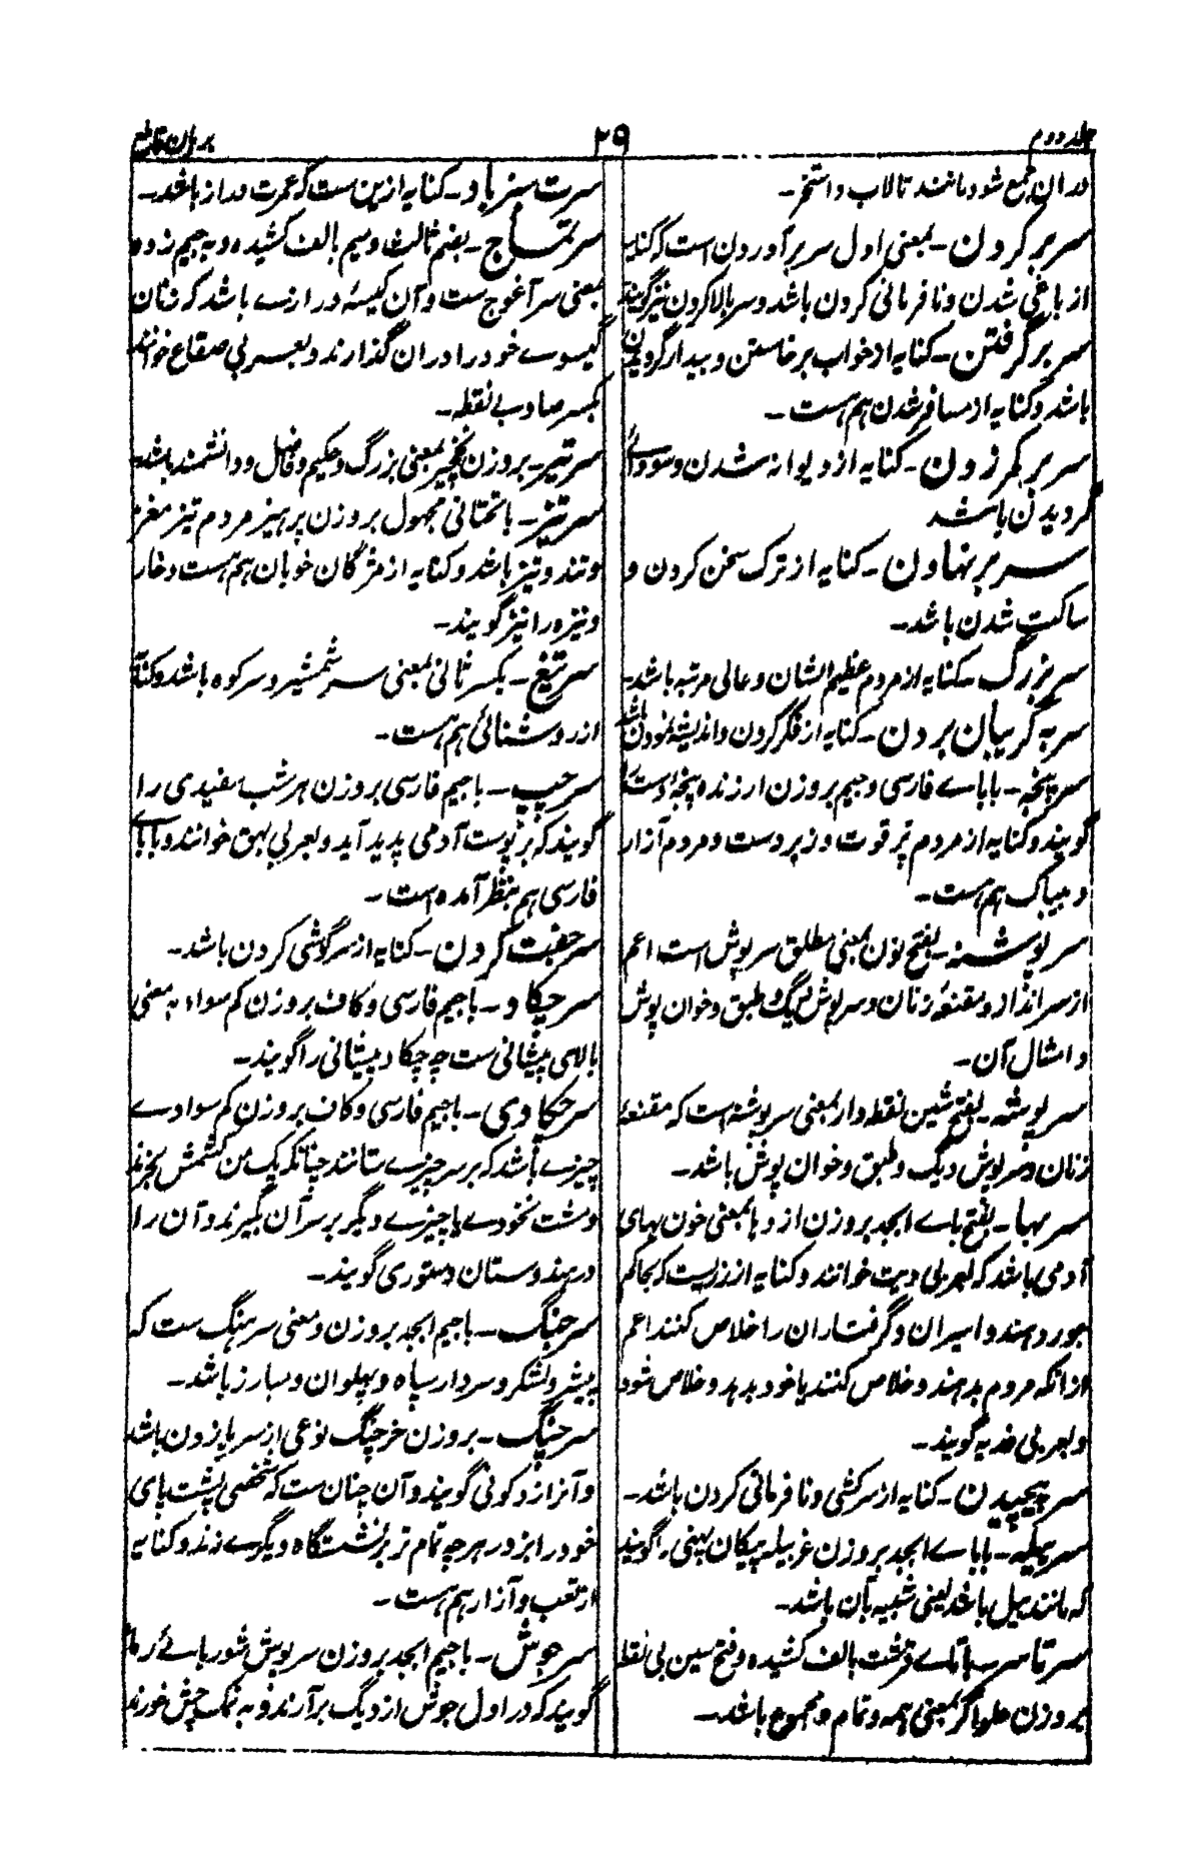 جلد دوم
۲۹
برہان قاطع
دران جمع شود مانند تالاب و استخر۔
سربر کردن۔ بمعنی اول سربرآوردن است که کنایه
از باغی شدن و نافرمانی کردن باشد و سر بالا کردن نیز گویند
سربر گرفتن۔ کنایه از خواب برخاستن و بیدار گردیدن
باشد و کنایه از مسافر شدن هم هست۔
سر بر کمر زدن۔ کنایه از دیوانه شدن و سودائے
گردیدن باشد
سر بر نهادن۔ کنایه از ترک سخن کردن و
ساکت شدن باشد۔
سر بزرگ۔ کنایه از مردم عظیم الشان و عالی مرتبه باشد۔
سر به گریبان بردن۔ کنایه از فکر کردن و اندیشه نمودن باشد
سر پنجه۔ با باے فارسی و جیم بروزن ارزنده پنجهٔ دست را
گویند و کنایه از مردم پر قوت و زبردست و مردم آزار
و بیباک هم هست۔
سرپوشنه۔ بفتح نون بمعنی مطلق سرپوش است اعم
از سرانداز و مقنعهٔ زنان و سرپوش دیگ و طبق و خوان پوش
و امثال آن۔
سرپوشه۔ بفتح شین نقطه دار بمعنی سرپوشنه است که مقنعهٔ
زنان و سرپوش دیگ و طبق و خوان پوش باشد۔
سربها۔ بفتح باے ابجد بروزن اژدها بمعنی خون بهای
آدمی باشد که بعربی دیت خوانند و کنایه از زریست که بحاکم
جور دهند و اسیران و گرفتاران را خلاص کنند اعم
ازانکه مردم بدهند و خلاص کنند یا خود بدهد و خلاص شود
و بعربی فدیه گویند۔
سر پیچیدن۔ کنایه از سرکشی و نافرمانی کردن باشد۔
سربیله۔ با باے ابجد بروزن غربیله پیکان پهنی را گویند
که مانند بیل باشد یعنی شبیه بآن باشد۔
سرتاسر۔ با تاے قرشت بالف کشیده و فتح سین بی نقطه
بروزن علواگر بمعنی همه و تمام و مجموع باشد۔
سرت سبز باد۔ کنایه ازین ست که عمرت دراز باشد۔
سرتماج۔ بضم ثالث و میم بالف کشیده و به جیم زده
بمعنی سرآغوج ست و آن کیسهٔ درازے باشد که زنان
گیسوے خود را دران گذارند و بعربی صقاع خوانند
بکسر صاد بے نقطه۔
سرتیر۔ بروزن نخچیر بمعنی بزرگ و حکیم و فاضل و دانشمند باشد۔
سرتیز۔ با تحتانی مجهول بروزن پرهیز مردم تیز مغز
و تند و تیز باشد و کنایه از مژگان خوبان هم هست و خار
و نیزه را نیز گویند۔
سرتیغ۔ بکسر ثانی بمعنی سر شمشیر و سر کوه باشد و کنایه
از روشنائی هم هست۔
سرچپ۔ با جیم فارسی بروزن هر شب سفیدی را
گویند که بر پوست آدمی پدید آید و بعربی بهق خوانند و با باے
فارسی هم بنظر آمده است۔
سر جفت کردن۔ کنایه از سرگوشی کردن باشد۔
سرچکاد۔ با جیم فارسی و کاف بروزن کم سواد به معنی
بالای پیشانی ست چه چکاد پیشانی را گویند۔
سرچکادی۔ با جیم فارسی و کاف بروزن کم سوادے
چیزے باشد که بر سر چیزے ستانند چنانکه یک من کشمش بخرند
و مشت نخودے یا چیزے دیگر بر سر آن بگیرند و آن را
در هندوستان دستوری گویند۔
سرجنگ۔ با جیم ابجد بروزن و معنی سرهنگ ست که
پیشرو لشکر و سردار سپاه و پهلوان و مبارز باشد۔
سرچنگ۔ بروزن خرچنگ نوعی از سر پا زدن باشد
و آنرا زد کونی گویند و آن چنان ست که شخصی پشت پای
خود را بزور هرچه تمام تر بر نشستگاه دیگرے زند و کنایه
از تعب و آزار هم هست۔
سرجوش۔ با جیم ابجد بروزن سرپوش شوربائے را
گویند که در اول جوش از دیگ برآرند و به نمک چش خورند